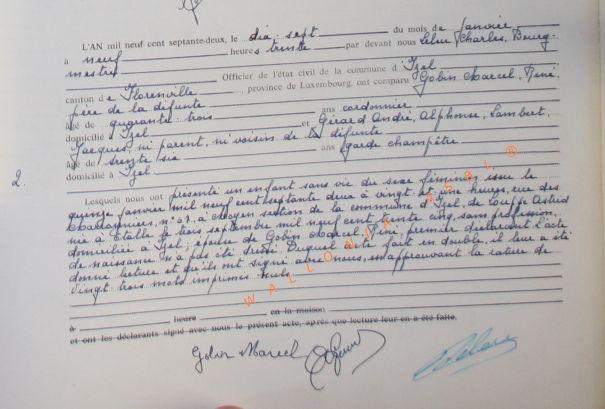 L'AN mil neuf cent septante-deux, le dix-sept du mois de Janvier
à neuf heures trente par devant nous Charles, Bourg-
mestre Officier de l'état civil de la commune d'Izel
canton de Florenville, province de Luxembourg, ont comparu Gobin Marcel, René,
père de la défunte
âgé de quarante-trois ans cordonnier
domicilié à Izel et Gérard André, Alphonse, Lambert,
Jacques, ni parent, ni voisin de la défunte
âgé de trente six ans garde champêtre
domicilié à Izel
2.
Lesquels nous ont présenté un enfant sans vie du sexe féminin issu le
quinze janvier mil neuf cent septante deux à vingt et une heures, rue des
n° 67, à Moyen section de la commune d'Izel, de Astrid
née à Etalle le trois septembre mil neuf cent trente cinq, sans profession,
domiciliée à Izel, épouse de Gobin Marcel, René, premier déclarant l'acte
de naissance n'a pas été dressé. Duquel acte fait en double, il leur a été
donné lecture et qu'ils ont signé avec nous, en approuvant la rature de
vingt-trois mots imprimés nuls.
WALLONIA ASBL ®
à heure en la maison
et ont les déclarants signé avec nous le présent acte, après que lecture leur en a été faite.
Gobin Marcel